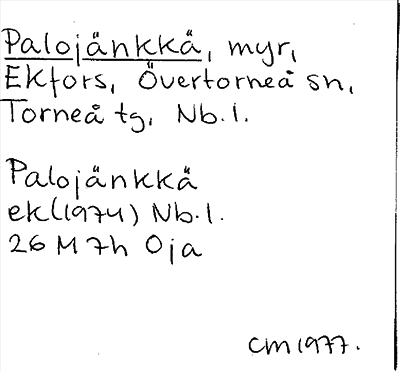 Palojänkkä, myr,
Ekfors, Övertorneå sn,
Torneå tg, Nb.l.
Palojänkkä
ek(1974) Nb.l.
26 M 7h Oja
CM 1977.